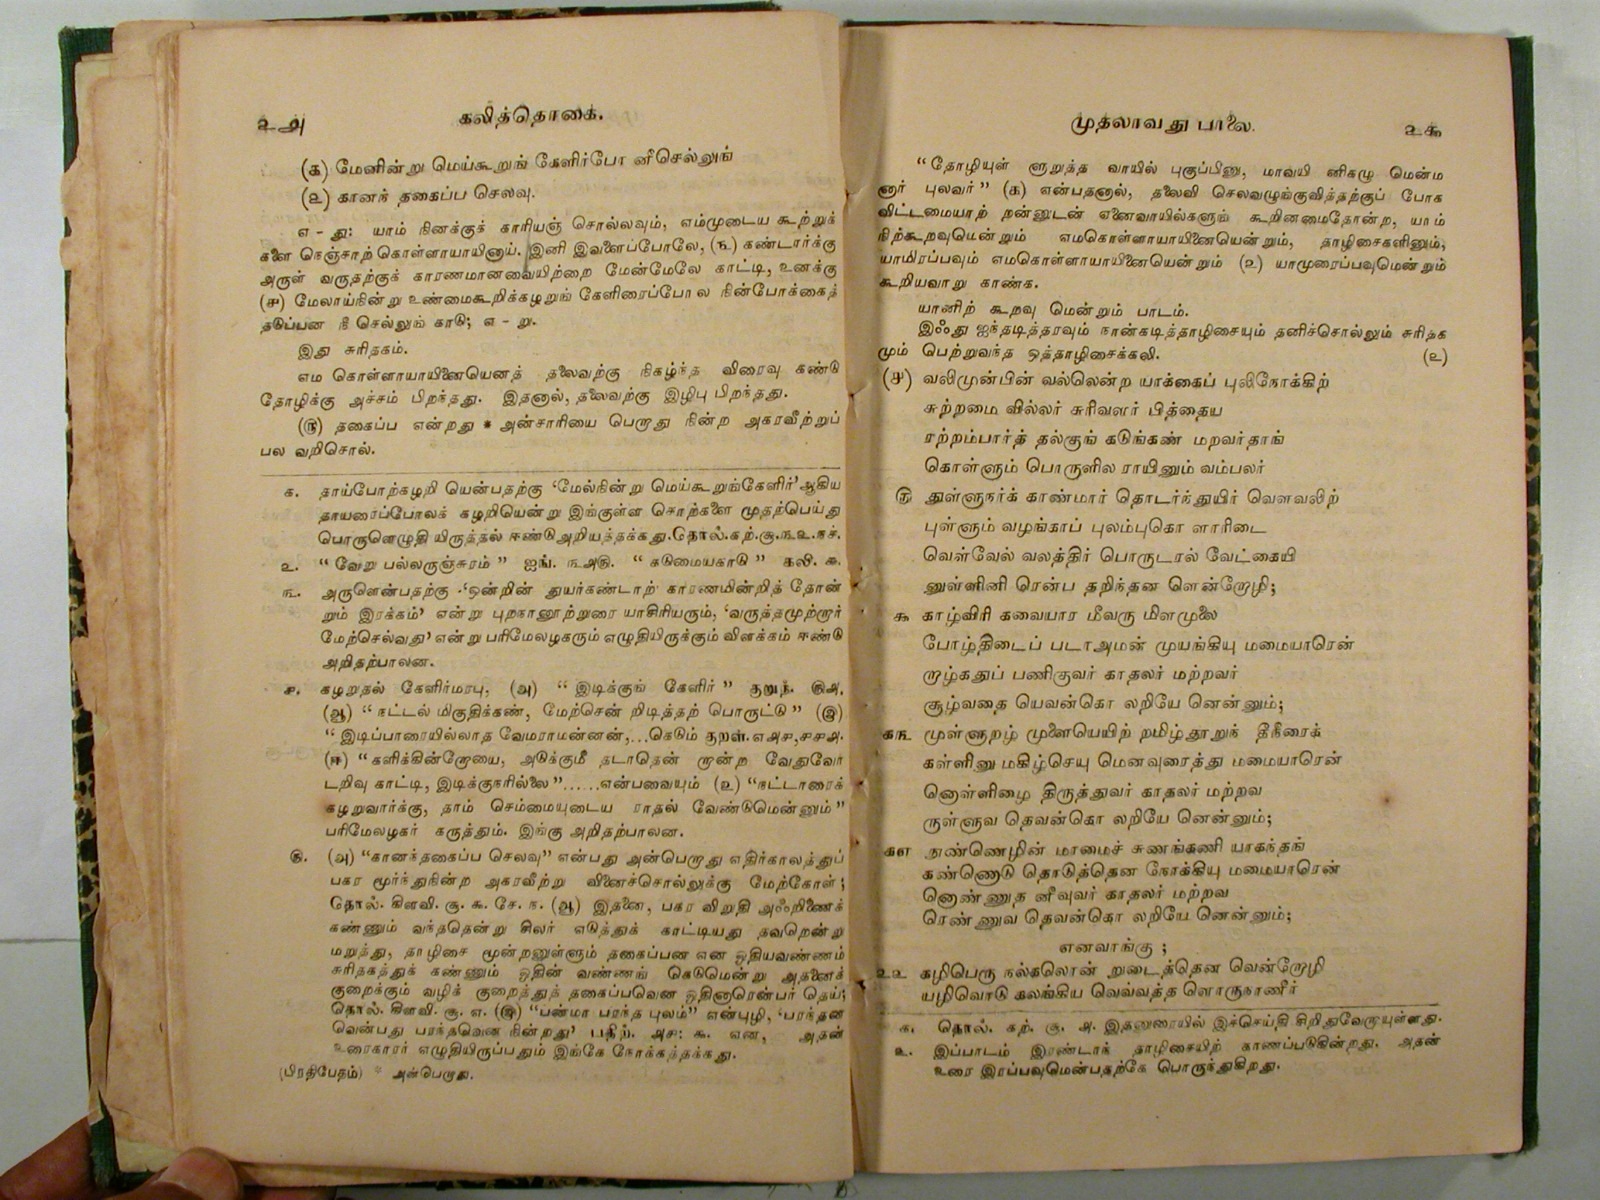 உஅ
கலித்தொகை.
(க) மேனின்று மெய்கூறுங் கேளிர்போ னீசெல்லுங்
(உ) கானந் தகைப்ப செலவு.
எ - து: யாம் நினக்குக் காரியஞ் சொல்லவும், எம்முடைய கூற்றுக்
களை நெஞ்சாற்கொள்ளாயாயினாய். இனி இவளைப்போலே, (ங) கண்டார்க்கு
அருள் வருதற்குக் காரணமானவையிற்றை மேன்மேலே காட்டி, உனக்கு
(ச) மேலாய்நின்று உண்மைகூறிக்கழறுங் கேளிரைப்போல நின்போக்கைத்
தடுப்பன நீ செல்லுங் காடு; எ - று.
இது சுரிதகம்.
எம கொள்ளாயாயினையெனத் தலைவற்கு நிகழ்ந்த விரைவு கண்டு
தோழிக்கு அச்சம் பிறந்தது. இதனால், தலைவற்கு இழிபு பிறந்தது.
(ரு) தகைப்ப என்றது * அன்சாரியை பெறாது நின்ற அகரவீற்றுப்
பல வறிசொல்.
க. தாய்போற்கழறி யென்பதற்கு ‘மேல்நின்று மெய்கூறுங்கேளிர்’ ஆகிய
தாயரைப்போலக் கழறியென்று இங்குள்ள சொற்களை முதற்பெய்து
பொருளெழுதி யிருத்தல் ஈண்டுஅறியத்தக்கது. தொல்.கற்.சூ.ங௨.நச்.
உ. “வேறு பல்லருஞ்சுரம்” ஐங். ங௮ரு. “கடுமையகாடு” கலி. ௬.
ங. அருளென்பதற்கு ‘ஒன்றின் துயர்கண்டாற் காரணமின்றித் தோன்
றும் இரக்கம்’ என்று புறநானூற்றுரை யாசிரியரும், ‘வருத்தமுற்றார்
மேற்செல்வது’ என்று பரிமேலழகரும் எழுதியிருக்கும் விளக்கம் ஈண்டு
அறிதற்பாலன.
ச. கழறுதல் கேளிர்மரபு, (அ) “இடிக்குங் கேளிர்” குறுந். ரு௮.
(ஆ) “நட்டல் மிகுதிக்கண், மேற்சென் றிடித்தற் பொருட்டு” (இ)
“இடிப்பாரையில்லாத வேமராமன்னன்,...கெடும் குறள்.எ௮ச,சச௮.
(ஈ) “களிக்கின்றோயை, அடுக்குமீ தடாதென் றான்ற வேதுவோ
டறிவு காட்டி, இடிக்குநரில்லை”......என்பவையும் (உ) “நட்டாரைக்
கழறுவார்க்கு, தாம் செம்மையுடைய ராதல் வேண்டுமென்னும்”
பரிமேலழகர் கருத்தும். இங்கு அறிதற்பாலன.
ரு. (அ) “கானந்தகைப்ப செலவு” என்பது அன்பெறாது எதிர்காலத்துப்
பகர மூர்ந்துநின்ற அகரவீற்று வினைச்சொல்லுக்கு மேற்கோள்;
தொல். கிளவி. சூ. ௬. சே. ந. (ஆ) இதனை, பகர விறுதி அஃறிணைக்
கண்ணும் வந்ததென்று சிலர் எடுத்துக் காட்டியது தவறென்று
மறுத்து, தாழிசை மூன்றனுள்ளும் தகைப்பன என ஓதியவண்ணம்
சுரிதகத்துக் கண்ணும் ஓதின் வண்ணங் கெடுமென்று அதனைக்
குறைக்கும் வழிக் குறைத்துத் தகைப்பவென ஓதினாரென்பர் தெய்;
தொல். கிளவி. சூ. எ. (இ) “பன்மா பரந்த புலம்” என்புழி, ‘பரந்தன
வென்பது பரந்தவென நின்றது’ பதிற். ௮ச: ௬. என, அதன்
உரைகாரர் எழுதியிருப்பதும் இங்கே நோக்கத்தக்கது.
(பிரதிபேதம்) * அன்பெறாது.
முதலாவது பாலை.
உ௯
“தோழியுள் ளுறுத்த வாயில் புகுப்பினு, மாவயி னிகழு மென்ம
னார் புலவர்” (க) என்பதனால், தலைவி செலவழுங்குவித்தற்குப் போக
விட்டமையாற் றன்னுடன் ஏனைவாயில்களுங் கூறினமைதோன்ற, யாம்
நிற்கூறவுமென்றும் எமகொள்ளாயாயினையென்றும், தாழிசைகளினும்,
யாமிரப்பவும் எமகொள்ளாயாயினையென்றும் (உ) யாமுரைப்பவுமென்றும்
கூறியவாறு காண்க.
யானிற் கூறவு மென்றும் பாடம்.
இஃது ஐந்தடித்தரவும் நான்கடித்தாழிசையும் தனிச்சொல்லும் சுரிதக
மும் பெற்றுவந்த ஒத்தாழிசைக்கலி. (உ)
(ச) வலிமுன்பின் வல்லென்ற யாக்கைப் புலிநோக்கிற்
சுற்றமை வில்லர் சுரிவளர் பித்தைய
ரற்றம்பார்த் தல்குங் கடுங்கண் மறவர்தாங்
கொள்ளும் பொருளில ராயினும் வம்பலர்
ரு துள்ளுநர்க் காண்மார் தொடர்ந்துயிர் வௌவலிற்
புள்ளும் வழங்காப் புலம்புகொ ளாரிடை
வெள்வேல் வலத்திர் பொருடரல் வேட்கையி
னுள்ளினி ரென்ப தறிந்தன ளென்றோழி;
௯ காழ்விரி கவையார மீவரு மிளமுலை
போழ்திடைப் படாஅமன் முயங்கியு மமையாரென்
றாழ்கதுப் பணிகுவர் காதலர் மற்றவர்
சூழ்வதை யெவன்கொ லறியே னென்னும்;
கங முள்ளுறழ் முளையெயிற் றமிழ்தூறுந் தீநீரைக்
கள்ளினு மகிழ்செயு மெனவுரைத்து மமையாரென்
னொள்ளிழை திருத்துவர் காதலர் மற்றவ
ருள்ளுவ தெவன்கொ லறியே னென்னும்;
கஎ நுண்ணெழின் மாமைச் சுணங்கணி யாகந்தங்
கண்ணொடு தொடுத்தென நோக்கியு மமையாரென்
னொண்ணுத னீவுவர் காதலர் மற்றவ
ரெண்ணுவ தெவன்கொ லறியே னென்னும்;
எனவாங்கு;
உஉ கழிபெரு நல்கலொன் றுடைத்தென வென்றோழி
யழிவொடு கலங்கிய வெவ்வத்த ளொருநாணீர்
க. தொல். கற். சூ. ௮. இதனுரையில் இச்செய்தி சிறிதுவேறாயுள்ளது.
உ. இப்பாடம் இரண்டாந் தாழிசையிற் காணப்படுகின்றது. அதன்
உரை இரப்பவுமென்பதற்கே பொருந்துகிறது.